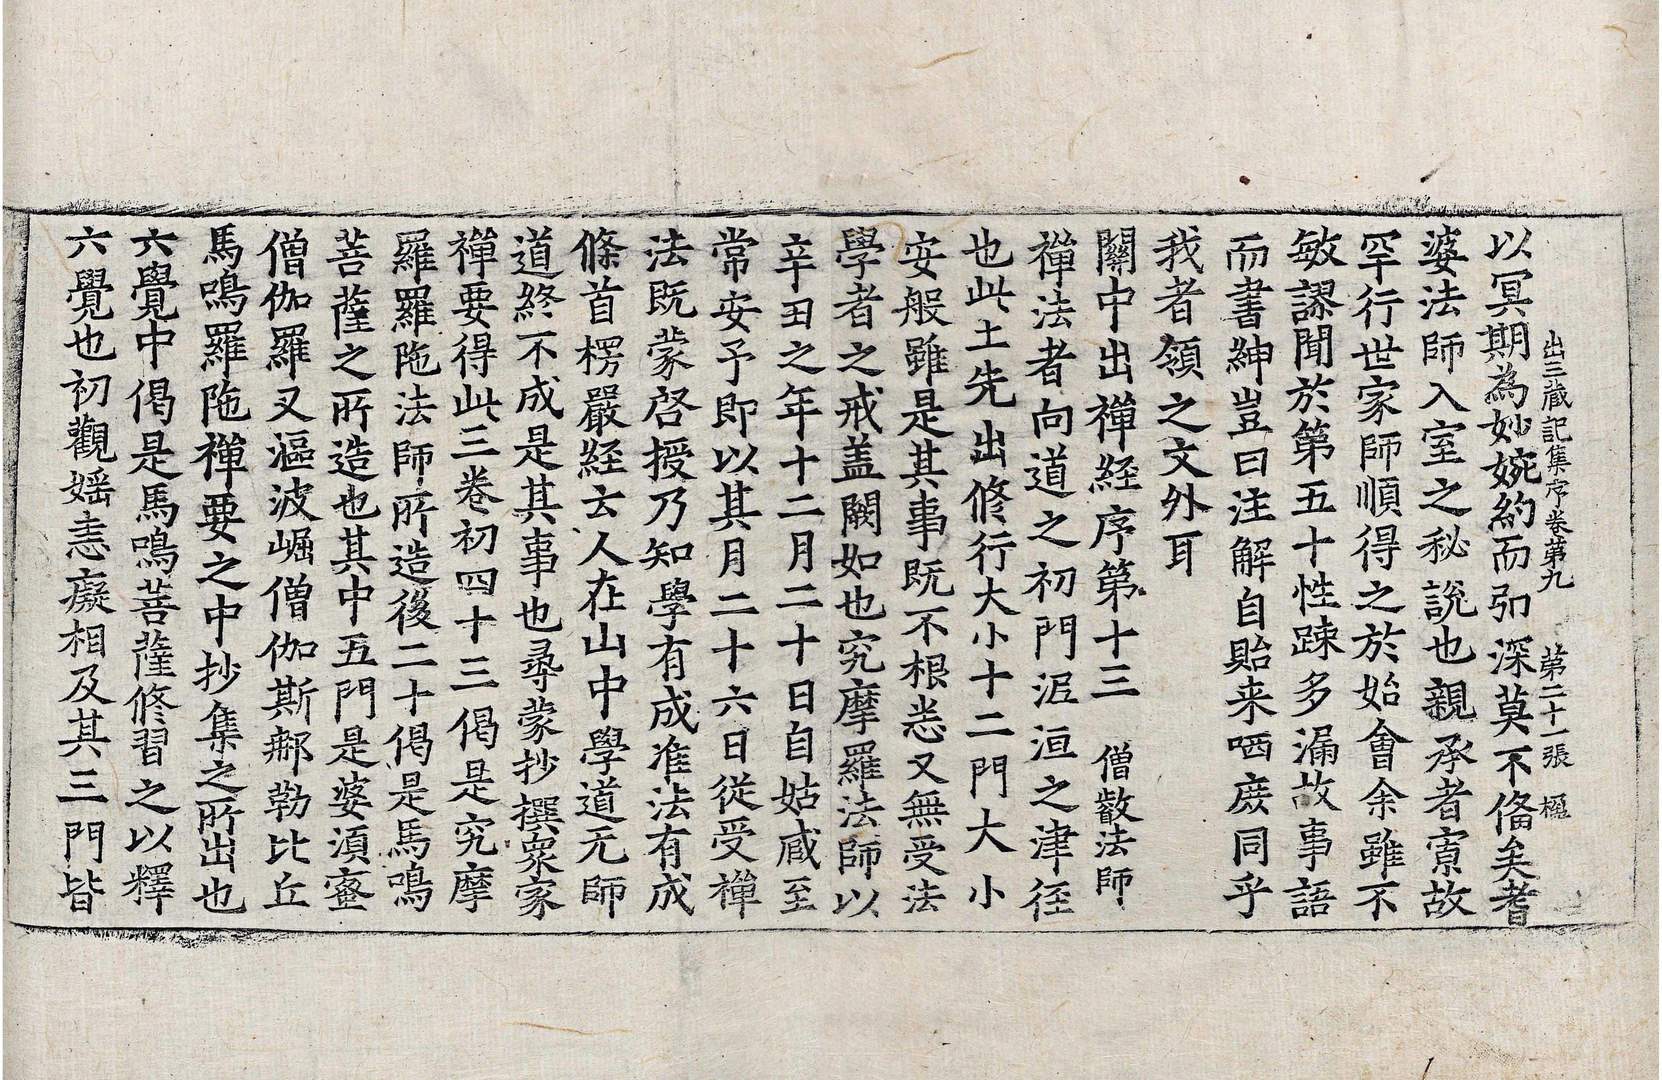 出三蔵記集序卷第九　第二十一張　楹
以冥期為妙婉約而弘深莫不俻矣耆
婆法師入室之秘說也親承者寡故
罕行世家師順得之於始會余雖不
敏謬聞於第五十性踈多漏故事語
而書紳豈曰注解自貽来哂庻同乎
我者領之文外耳
關中出禪経序第十三　僧叡法師
禪法者向道之初門泥洹之津徑
也此土先出修行大小十二門大小
安般雖是其事既不根悉又無受法
學者之戒盖闕如也究摩羅法師以
辛丑之年十二月二十日自姑臧至
常安予即以其月二十六日從受禪
法既蒙啓授乃知學有成准法有成
條首楞嚴経云人在山中學道无師
道終不成是其事也尋蒙抄撰衆家
禪要得此三卷初四十三偈是究摩
羅羅陁法師所造後二十偈是馬鳴
菩薩之所造也其中五門是婆湏蜜
僧伽羅叉漚波崛僧伽斯那勒比丘
馬鳴羅陁禪要之中抄集之所出也
六覺中偈是馬鳴菩薩修習之以釋
六覺也初觀婬恚癡相及其三門皆